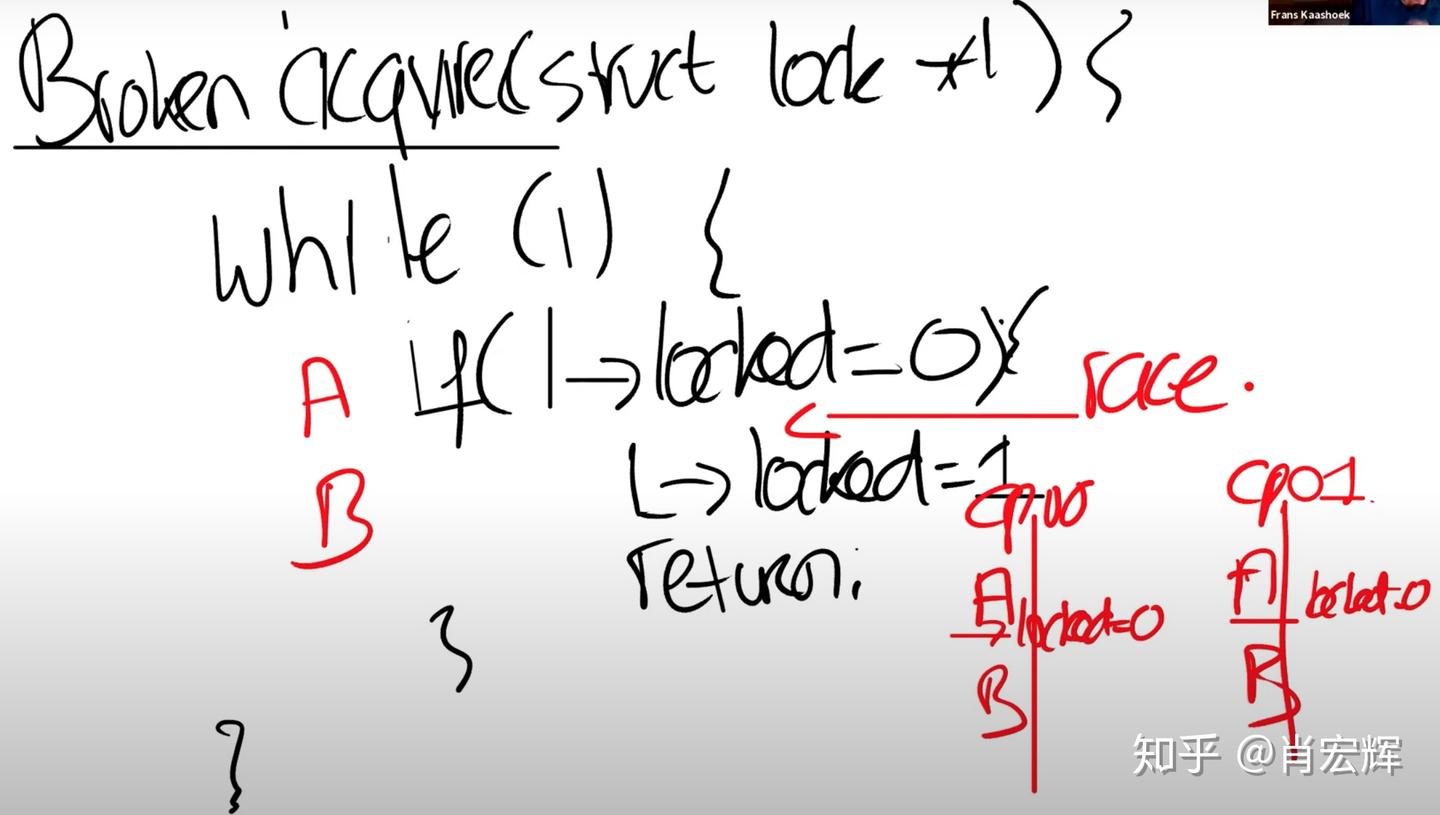 Frans Kaashoek
Broken acquire(struct lock *l) {
while (1) {
A if( l → locked = 0){
race.
B L → locked = 1
CPU0 CPU1
return;
A A
→ locked=0 locked=0
B B
}
}
知乎 @肖宏辉